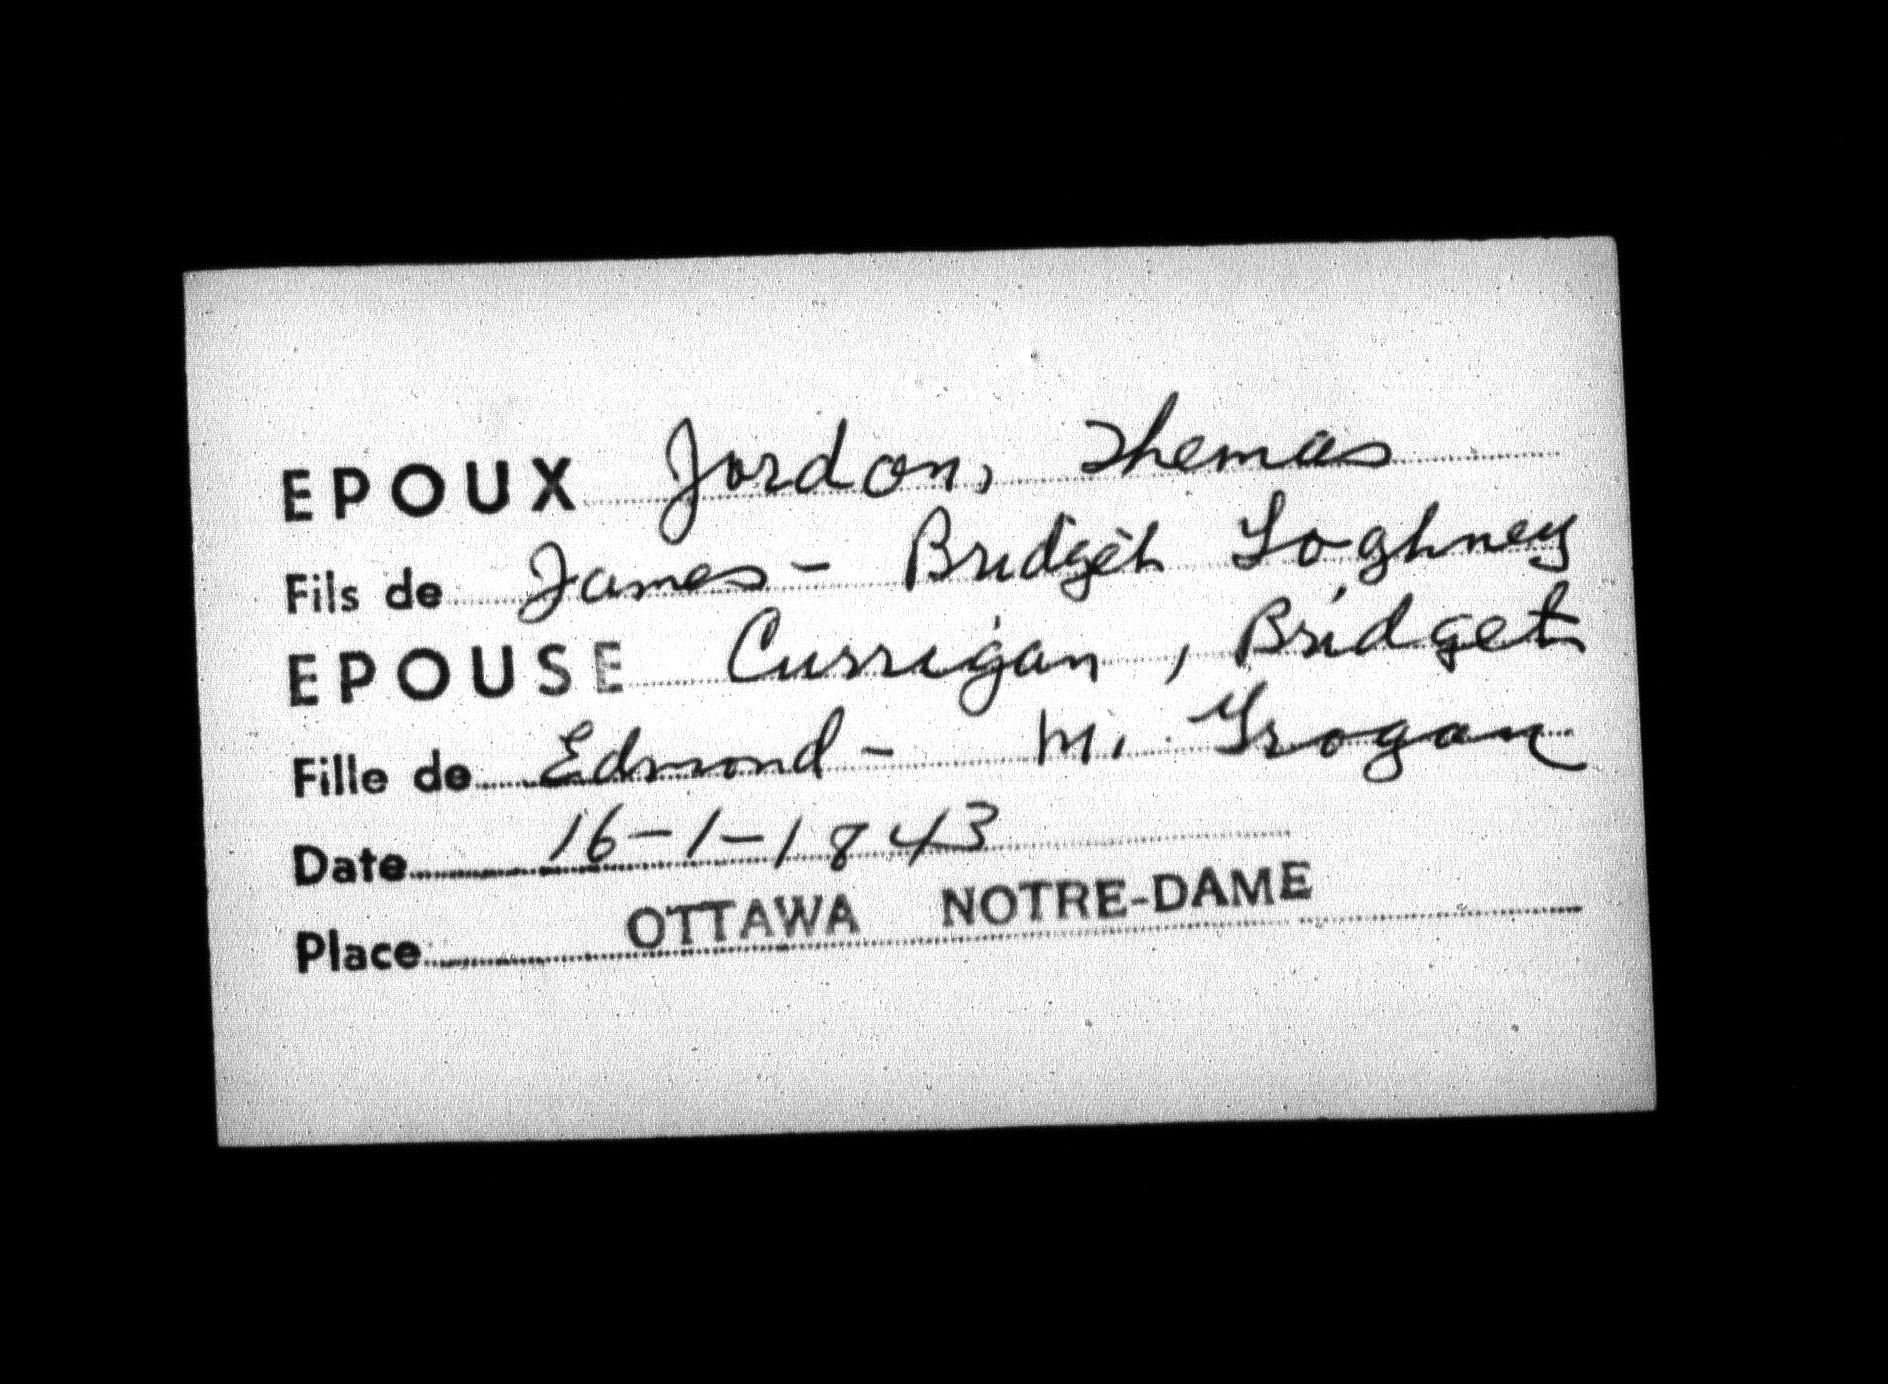 EPOUX Jordon, Thomas
Fils de James - Bridget Loghney
EPOUSE Currigan, Bridget
Fille de Edmond - M. Grogan
Date 16-1-1843
Place OTTAWA NOTRE-DAME